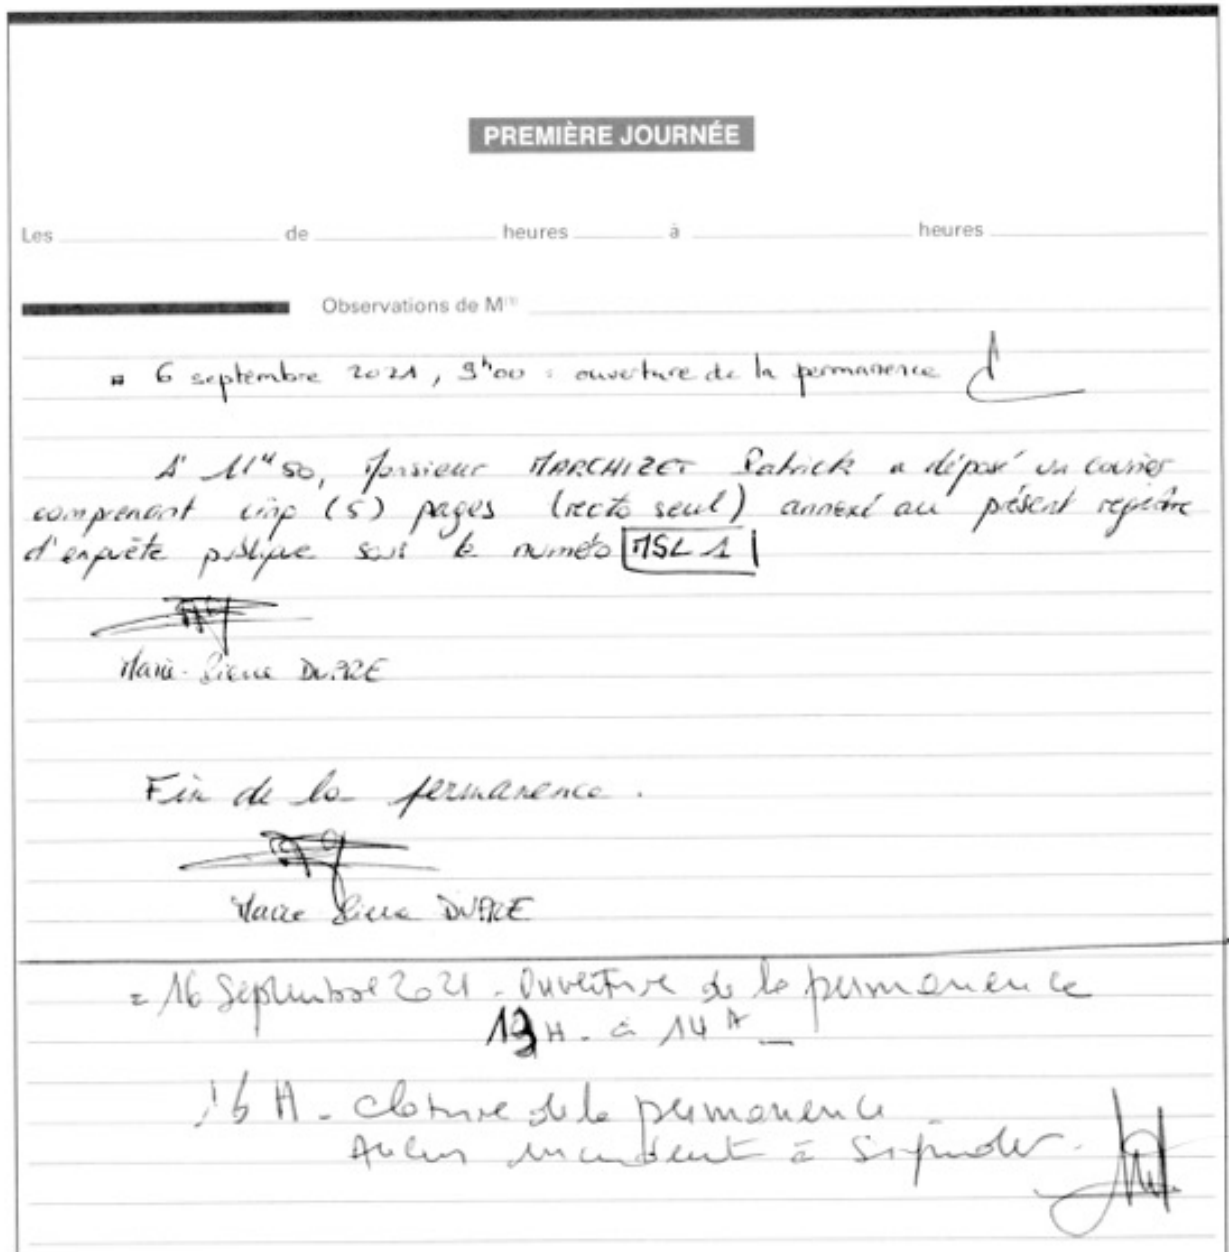 PREMIÈRE JOURNÉE
Les de heures à heures
Observations de M(1)
6 septembre 2021, 9h00 : ouverture de la permanence
A 11H50, Monsieur MARCHIZET Patrick a déposé un courrier
comprenant cinq (5) pages (recto seul) annexé au présent registre
d'enquête publique sous le numéro MSL 1
Marie-Pierre DUPRE
Fin de la permanence.
Marie Pierre DUPRE
= 16 Septembre 2021 - Ouverture de la permanence
H - à 14H
16 H - cloture de la permanence
Aucun incident à signaler.